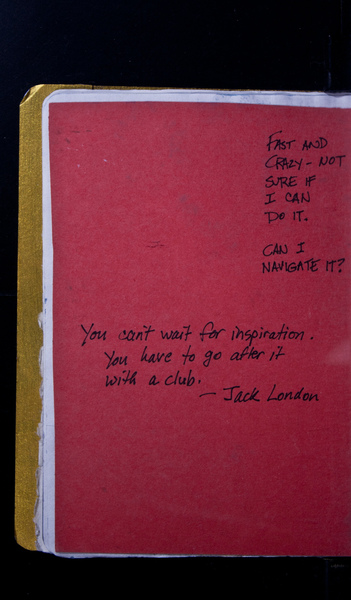 FAST AND
CRAZY - NOT
SURE IF
I CAN
DO IT.
CAN I
NAVIGATE IT?
You can't wait for inspiration.
You have to go after it
with a club.
- Jack London